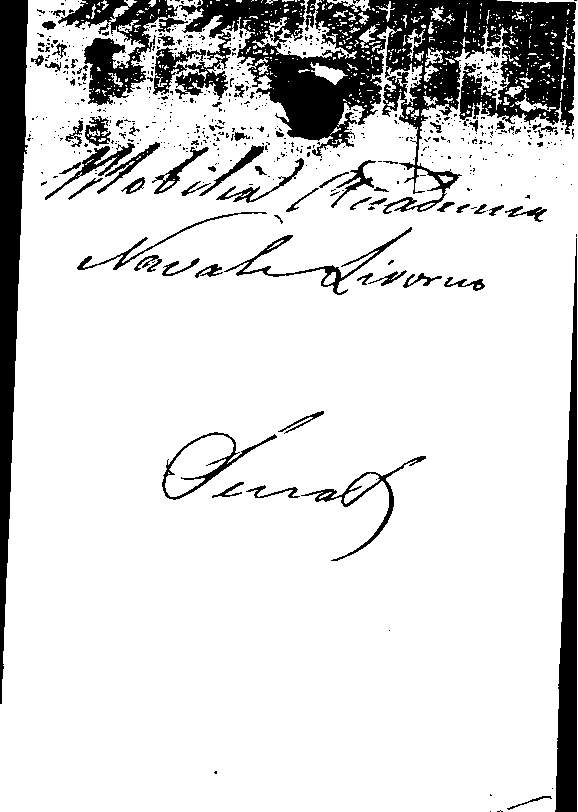 Mobilia Accademia
Navale Livorno
Serra